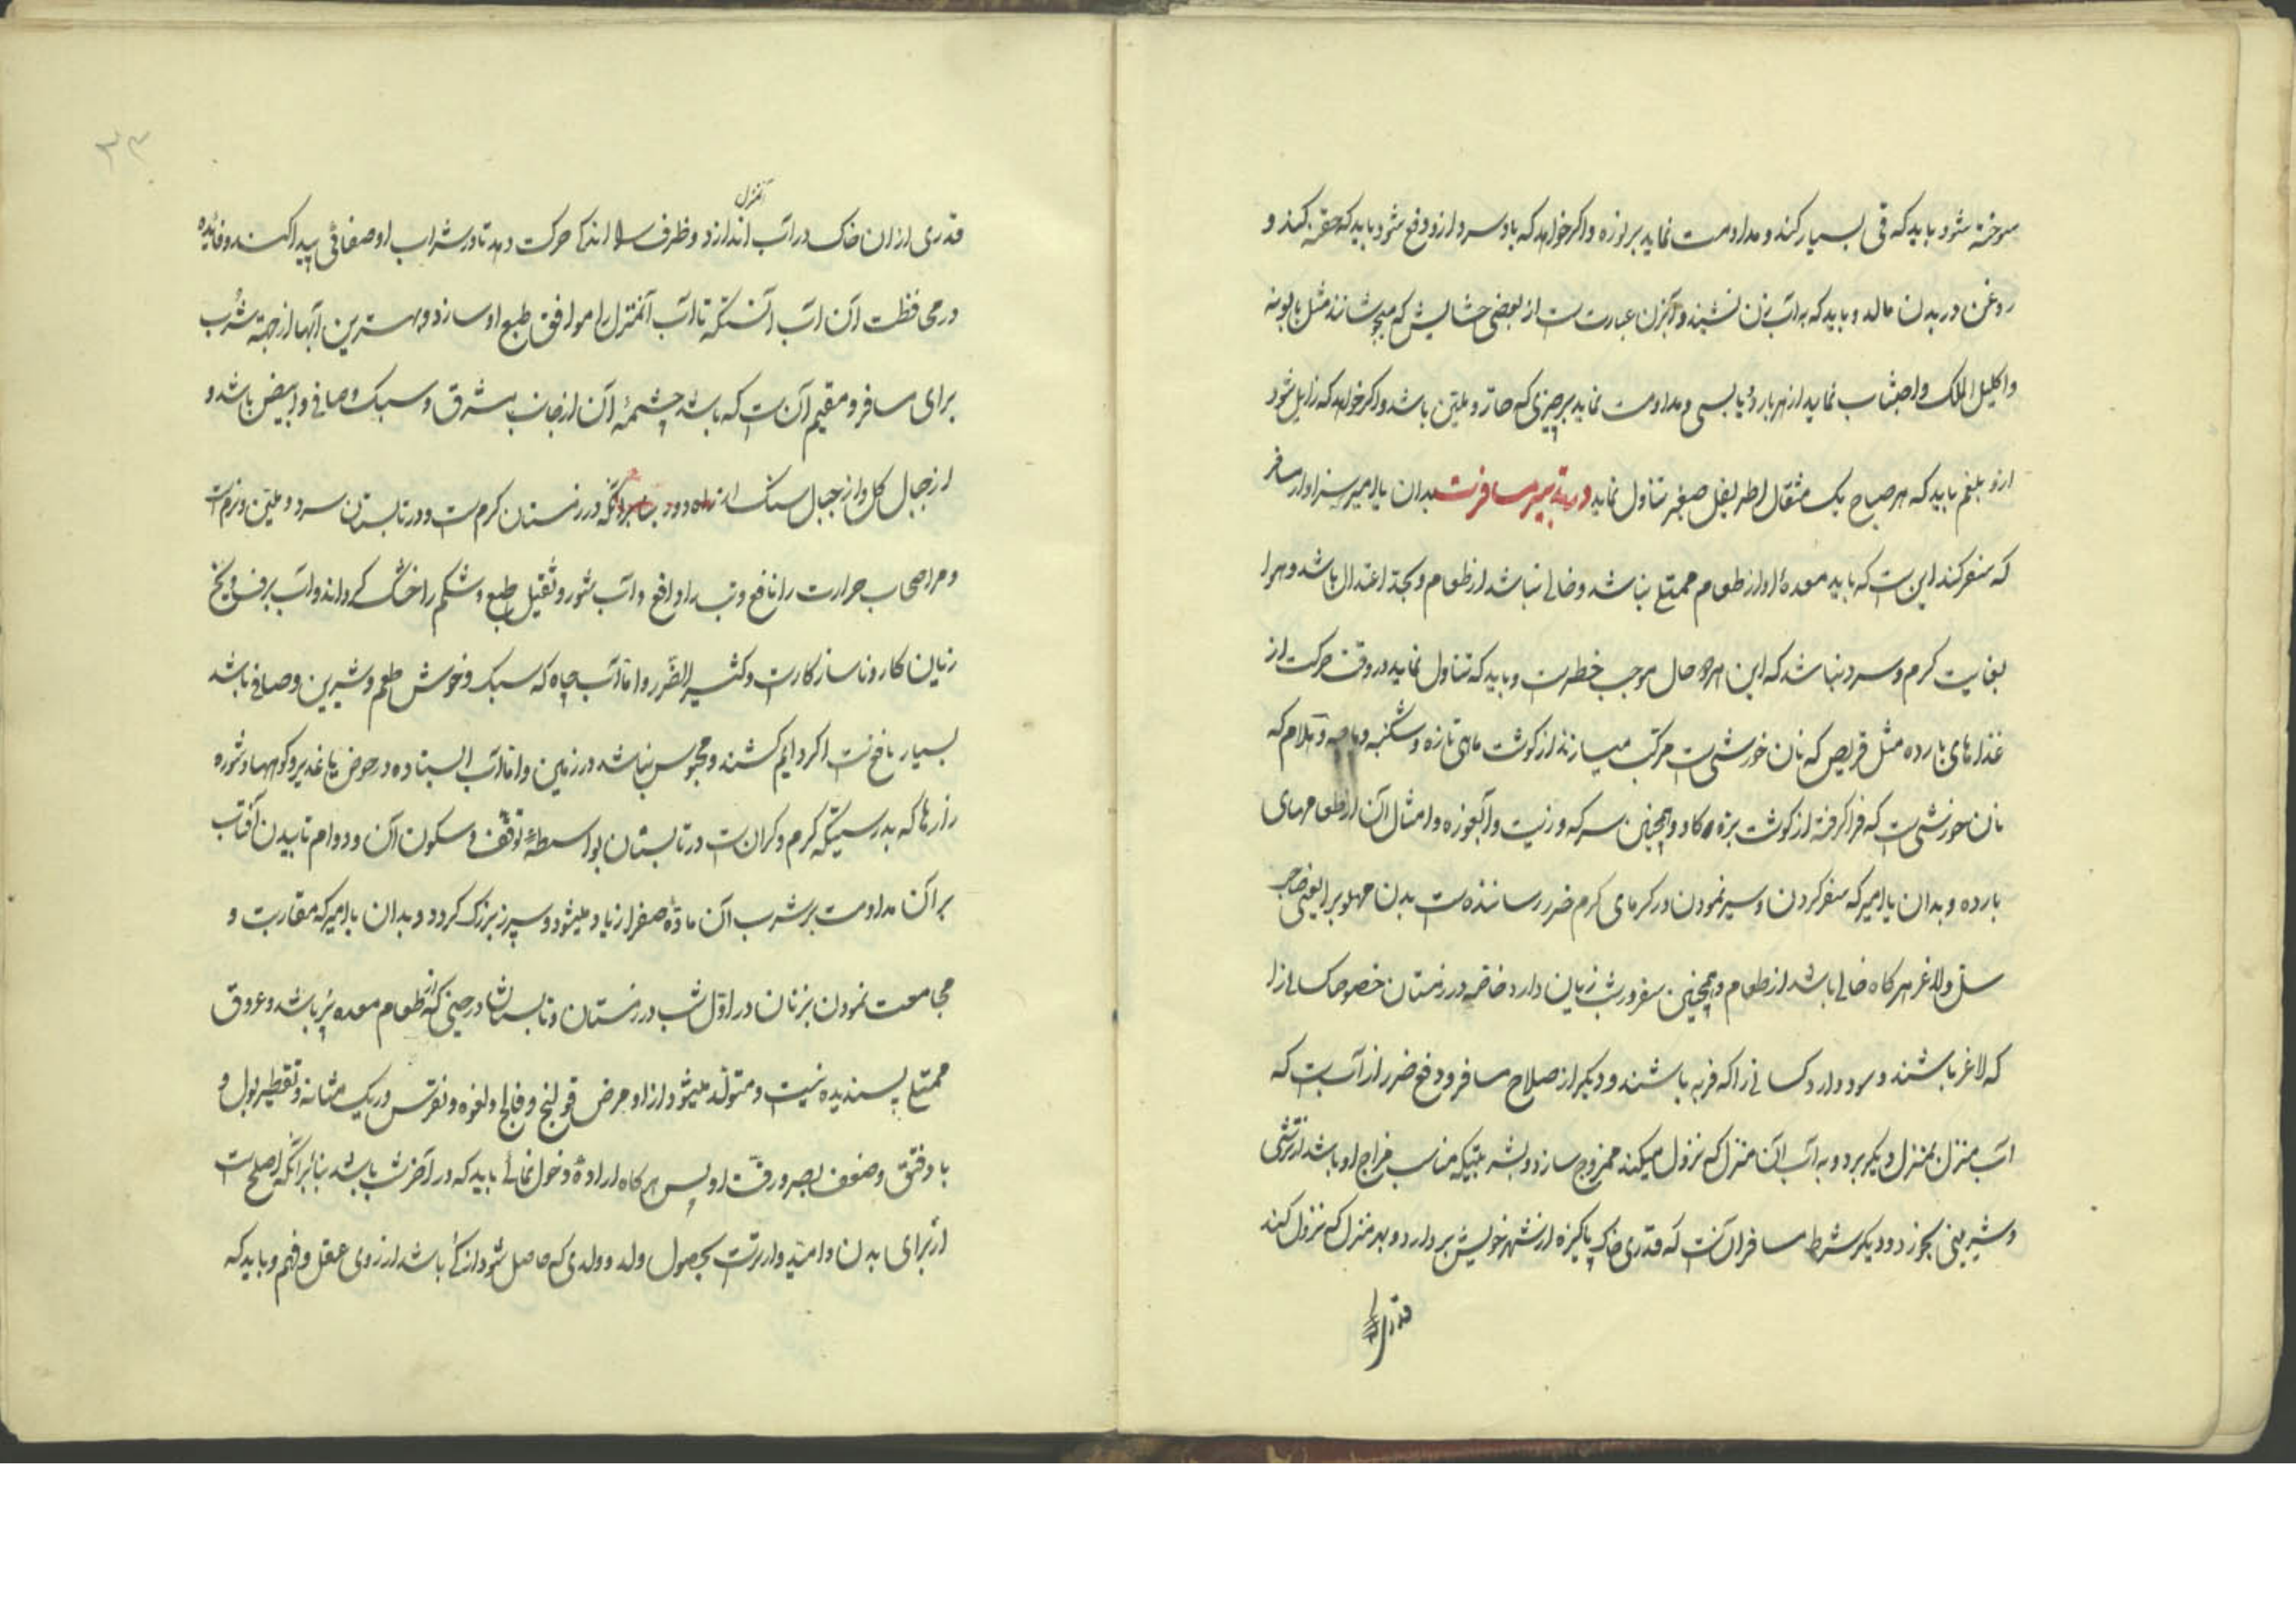 سوخته شود باید که قی بسیار کند و مداومت نماید بر لوزه و اگر خواهد که باد سرد ازو دفع شود باید که حقنه کند و
روغن در بدن مالد و باید که به آب زن نشیند و آبزن عبارتست از بعضی حشایش که میجوشانند مثل بابونه
و اکلیل الملک و اجتناب نماید از هر بارد یابسی و مداومت نماید بر چیزی که حار و ملین باشد و اگر خواهد که زایل شود
ازو بلغم باید که هر صباح یک مثقال اطریفل صغیر تناول نماید در تدبیر مسافرت بدان یا امیر سزاوار مسافر
که سفر کند این است که باید معده او از طعام ممتلی نباشد و خالی نباشد از طعام و بحد اعتدال باشد و هوا
بغایت گرم و سرد نباشد که این هر دو حال موجب خطرست و باید که تناول نماید در وقت حرکت از
غذاهای بارده مثل قریص که نان خورشیست مرکب میسازند از گوشت ماهی تازه و شکنبه و هلام که
نان خورشیست که فرا گرفته از گوشت بزه و گاو و همچنین سرکه و زیت و آبغوزه و امثال آن از طعامهای
بارده و بدان یا امیر که سفر کردن و سیر نمودن در گرمای گرم ضرر رساننده است بدن مهلوس را یعنی صاحب
سل و لاغر هرگاه خالی باشد از طعام و همچنین سفر در شب زیان دارد خاصه در زمستان خصوصا کسانی را
که لاغر باشند و سود دارد کسانی را که فربه باشند و دیگر از صلاح مسافر و دفع ضرر از آنست که
آب منزل بمنزل دیگر برد و به آب آن منزل که نزول میکند ممزوج سازد و بشربتیکه مناسب مزاج او باشد از ترشی
و شیرینی بخورد و دیگر شرط مسافر آن است که قدری خاک پاکیزه از شهر خویش بردارد و بهر منزل که نزول کند
قدری
۳۳
آنمنزل
قدری از ان خاک در آب اندازد و ظرف را اندک حرکت دهد تا در شراب او صفائی پیدا کند و فایده
در محافظت آن آب آنستکه تا آب آنمنزل را موافق طبع او سازد و بهترین آبها از جهة شرب
برای مسافر و مقیم آن است که باشد چشمهٔ آن از جانب مشرق و سبک و صافی و ابیض باشد و
از جبال گل و از جبال سنگ در زمستان گرم است و در تابستان سرد و ملین و نرم است
و مر اصحاب حرارت را نافع و تب را دافع و آب شور و ثقیل طبع و شکم را خشک گرداند و آب برف و یخ
زیان کار و ناسازکارست و کثیر الضرر و اما آب چاه که سبک و خوش طعم و شیرین و صافی باشد
بسیار نافع است اگر دایم کشند و محبوس نباشد در زمین و اما آب ایستاده در حوض یا غدیر و کوهها و شوره
زارها که بدرستیکه گرم و گران است در تابستان بواسطهٔ توقف و سکون آن و دوام تابیدن آفتاب
بر آن مداومت بر شرب آن مادهٔ صفرا زیاد میشود و سپرز بزرگ گردد و بدان یا امیر که مقاربت و
مجامعت نمودن بزنان در اول شب در زمستان و تابستان در حینی که از طعام معده پر باشد و عروق
ممتلی پسندیده نیست و متولد میشود ازو مرض قولنج و فالج و لغوه و نقرس و ریگ مثانه و تقطیر بول و
باد فتق و ضعف بصر و رقت او پس هرگاه ارادهٔ دخول نمائی باید که در آخر شب باشد بنابر آنکه اصلح است
از برای بدن و امیدوارترست بحصول ولد و ولدی که حاصل شود از کی باشد از روی عقل و فهم و باید که